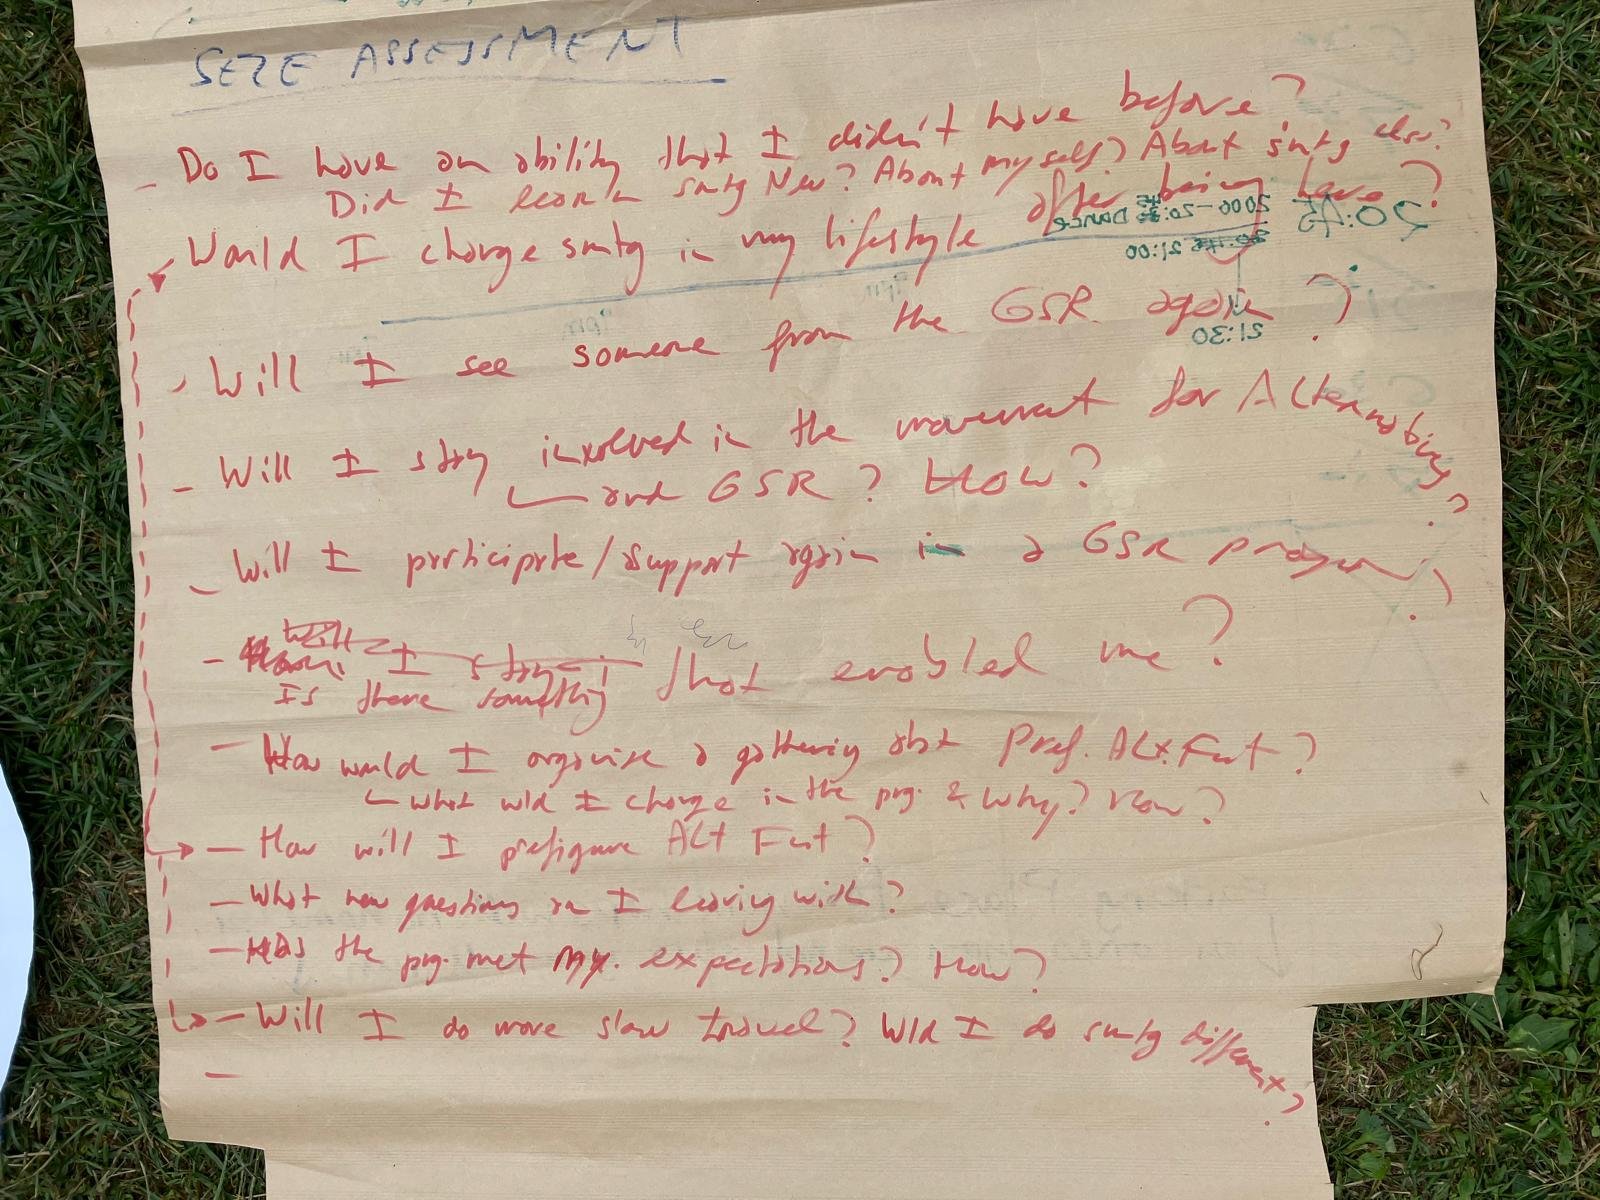 SEZE ASSESSMENT
- Do I have an ability that I didn't have before?
Did I learn smtg New? About myself? About smtg else?
- Would I change smtg in my lifestyle after being here?
- Will I see someone from the GSR again?
- Will I stay involved in the movement for Alternatives?
and GSR? How?
- Will I participate/support again in a GSR program?
- Will I stay i
Is there something that enabled me?
- How would I organise a gathering abt Pref. Alt. Fut?
What wld I change in the prg. & Why? How?
- How will I prefigure Alt Fut?
- What new questions am I leaving with?
- Has the prg. met my. expectations? How?
- Will I do more slow travel? Wld I do smtg different?
-
2000-20:45 Dance
20:45
21:00
21:30
9pm